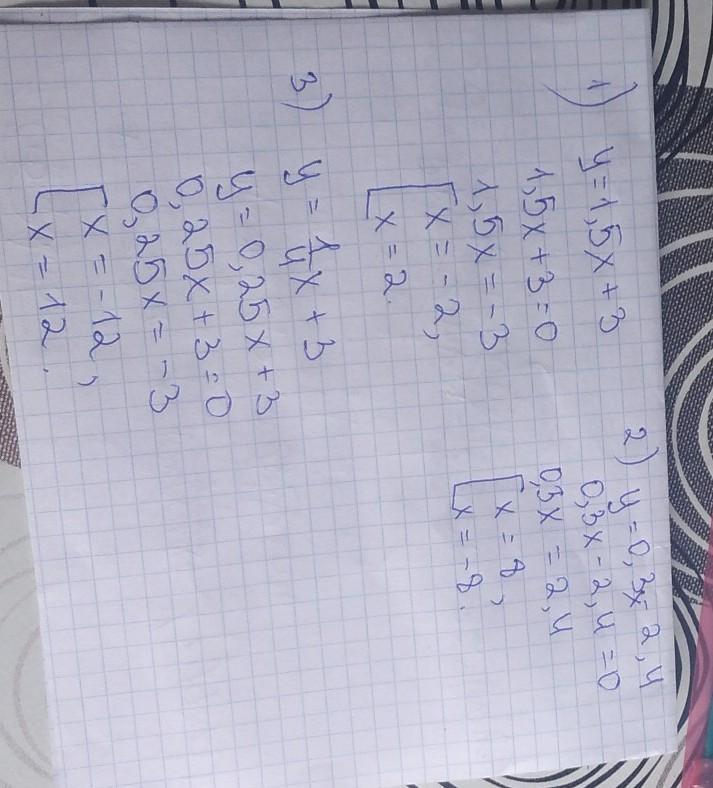 1) y = 1,5x + 3
1,5x + 3 = 0
1,5x = -3
[ x = -2,
x = 2.
2) y = 0,3x - 2,4
0,3x - 2,4 = 0
0,3x = 2,4
[ x = 8,
x = -8.
3) y = 1/4 x + 3
y = 0,25x + 3
0,25x + 3 = 0
0,25x = -3
[ x = -12,
x = 12.